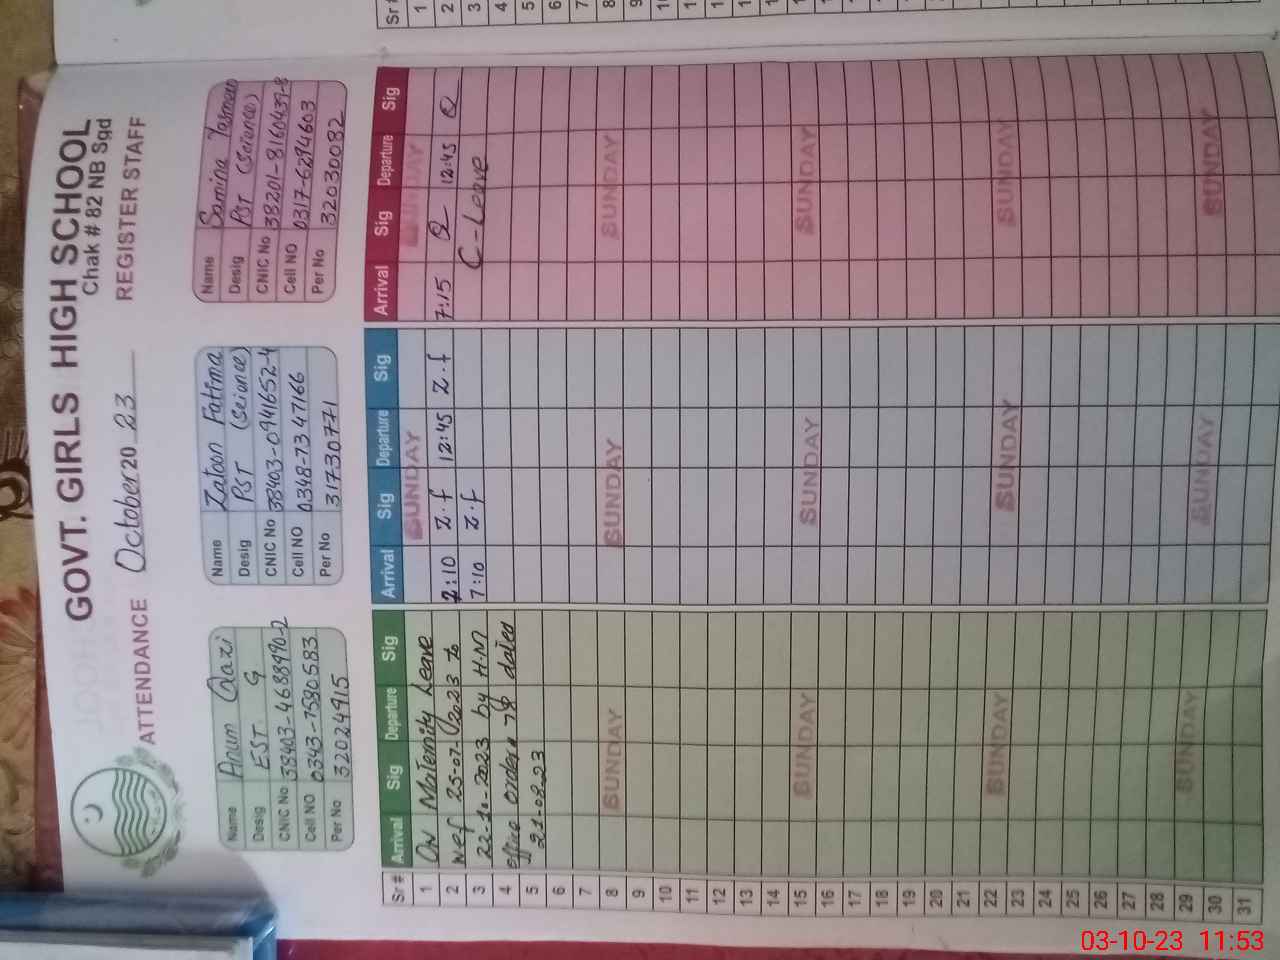 GOVT. GIRLS HIGH SCHOOL
Chak # 82 NB Sgd
ATTENDANCE October 20 23 REGISTER STAFF
Name Anum Qazi
Desig EST G
CNIC No 38403-4688490-2
Cell NO 0343-7580583
Per No 32024915
Name Zatoon Fatima
Desig PST (Seiance)
CNIC No 38403-0941652-4
Cell NO 0348-7347166
Per No 31730771
Name Samina Yasmeen
Desig PST (Seiance)
CNIC No 38201-8160439-8
Cell NO 0317-6294603
Per No 32030082
Sr # Arrival Sig Departure Sig Arrival Sig Departure Sig Arrival Sig Departure Sig
1 On Maternity Leave SUNDAY SUNDAY
2 wef 25-07-2023 to 7:10 Z.f 12:45 Z.f 7:15 12:45
3 22-10-2023 by H.M 7:10 Z.f C-Leave
4 office order # 78 dated
5 21-08-23
6
7
8 SUNDAY SUNDAY SUNDAY
9
10
11
12
13
14
15 SUNDAY SUNDAY SUNDAY
16
17
18
19
20
21
22 SUNDAY SUNDAY SUNDAY
23
24
25
26
27
28
29 SUNDAY SUNDAY SUNDAY
30
31
Sr #
1
2
3
4
5
6
7
8
9
03-10-23 11:53